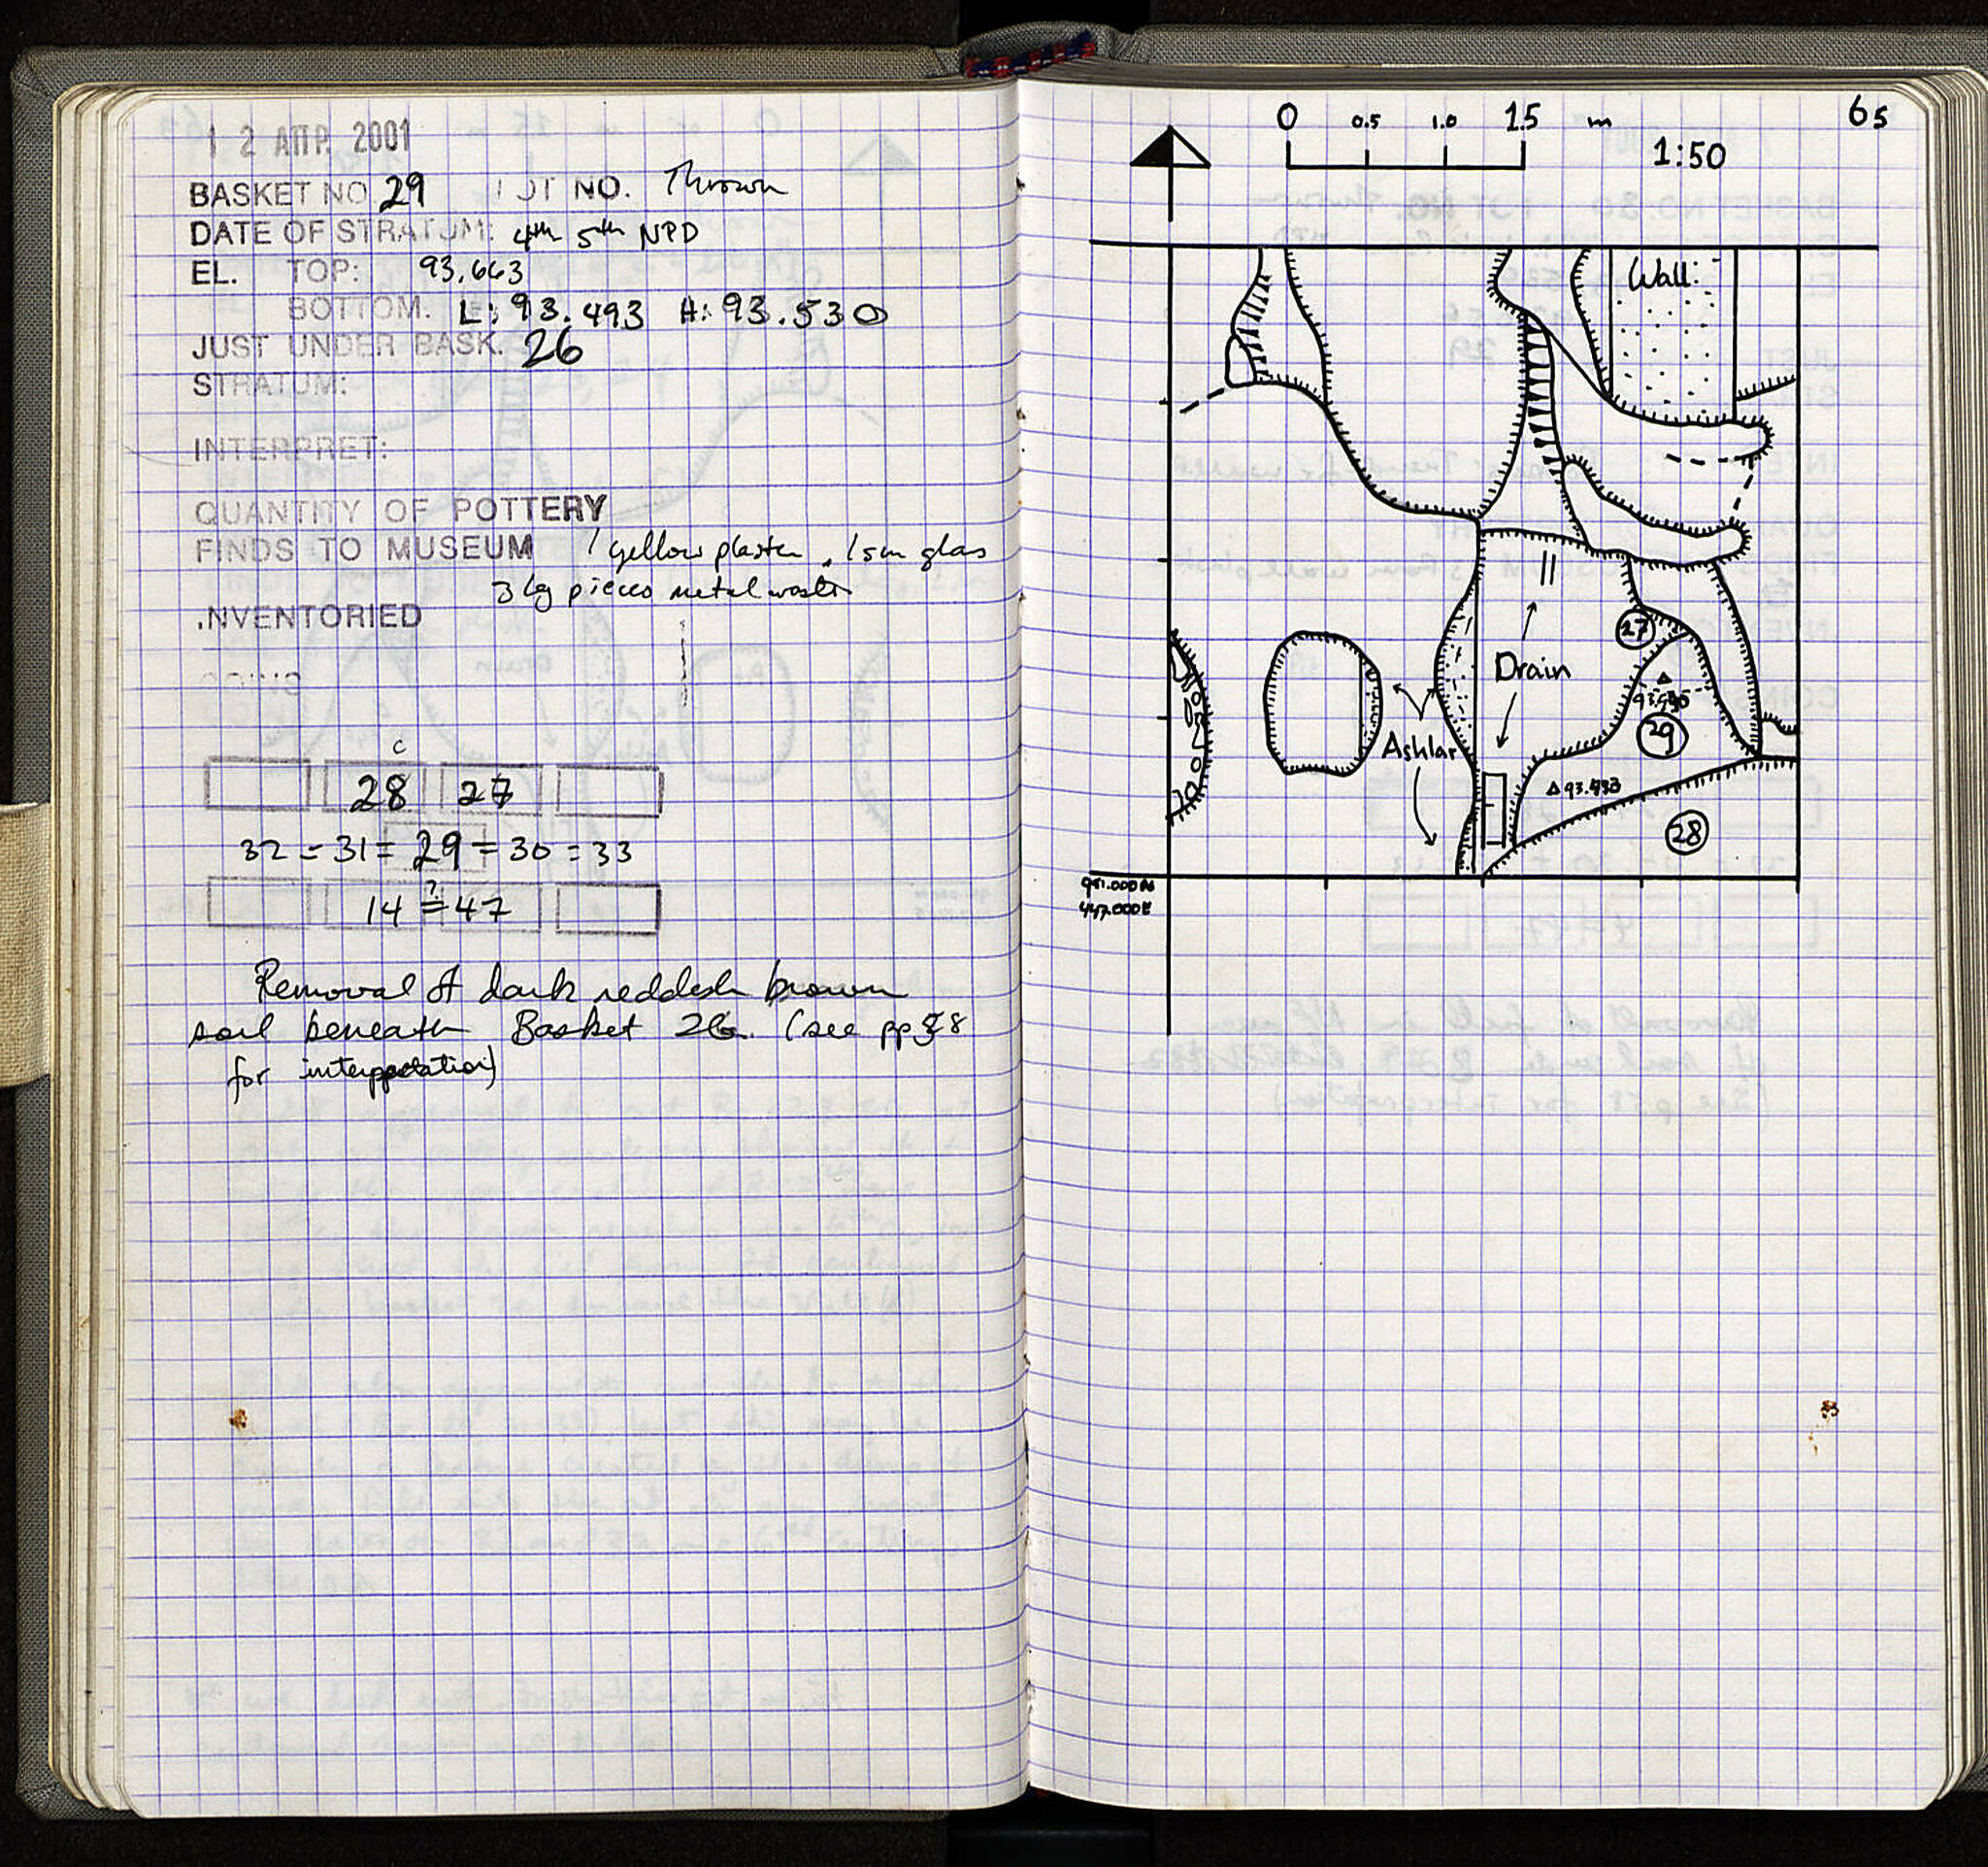 1 2 ΑΠΡ. 2001
BASKET NO. 29 LOT NO. Thrown
DATE OF STRATUM: 4th 5th NPD
EL. TOP: 93.663
BOTTOM. L: 93.493 H: 93.530
JUST UNDER BASK. 26
STRATUM:
INTERPRET:
QUANTITY OF POTTERY
FINDS TO MUSEUM 1 yellow plaster, 1 sm glas
3 lg pieces metal waste
INVENTORIED
COINS
C
28 27
32 = 31 = 29 = 30 = 33
?
14 = 47
Removal of dark reddish brown
soil beneath Basket 26. (see pp 58
for interpretation)
0 0.5 1.0 1.5 m 65
1:50
Wall:
27
Drain
29
Ashlar
28
447.000E